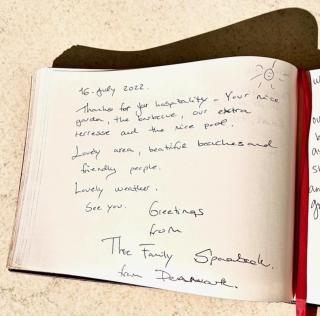 16. July 2022.
Thanks for your hospitality – Your nice
garden, the barbecue, our extra
terresse and the nice pool.
Lovely area, beatiful beaches and
friendly people.
Lovely weather.
See you. Greetings
from
The Family
from Denmark.